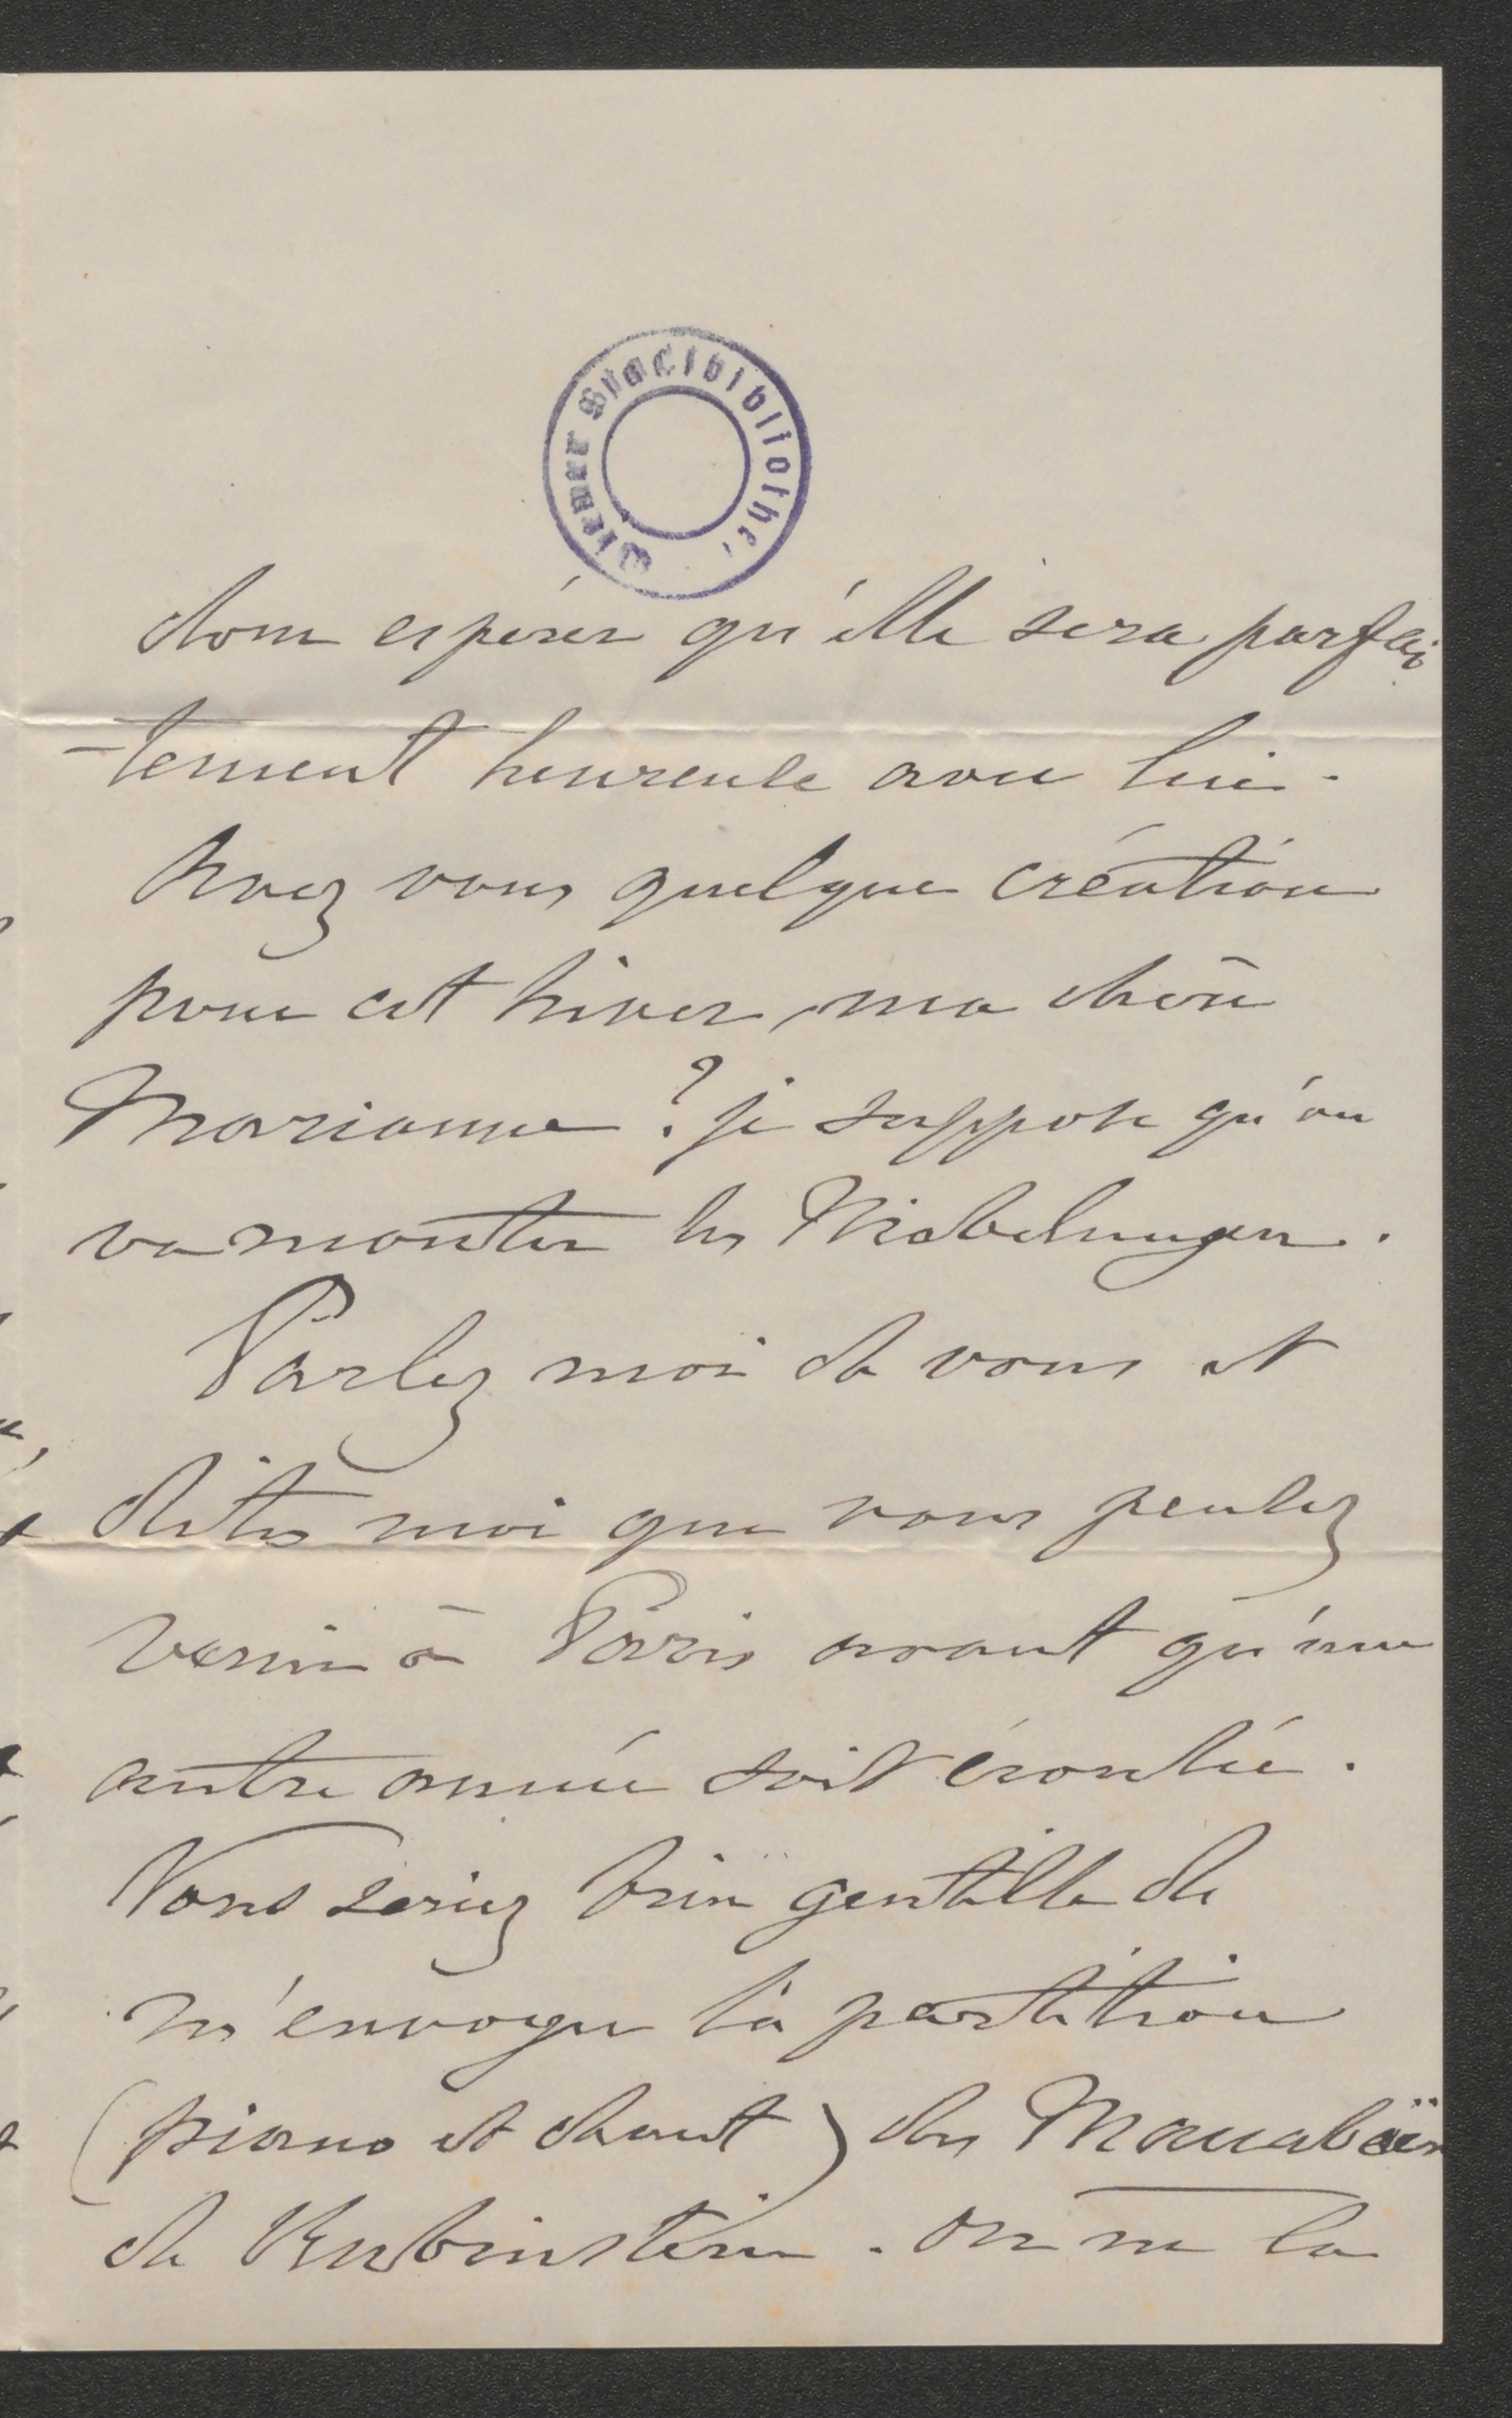 Wiener Stadtbibliothek
donc espérer qu'elle sera parfai
-tement heureuse avec lui.
Avez vous quelque création
pour cet hiver, ma chère
Marianne? je suppose qu'on
va monter les Niebelungen.
Parlez moi de vous et
dites moi que vous pensez
venir à Paris avant qu'une
autre année soit écoulée.
Vous seriez bien gentille de
m'envoyer la partition
(piano et chant) des Maccabéïs
de Rubinstein. On ne la